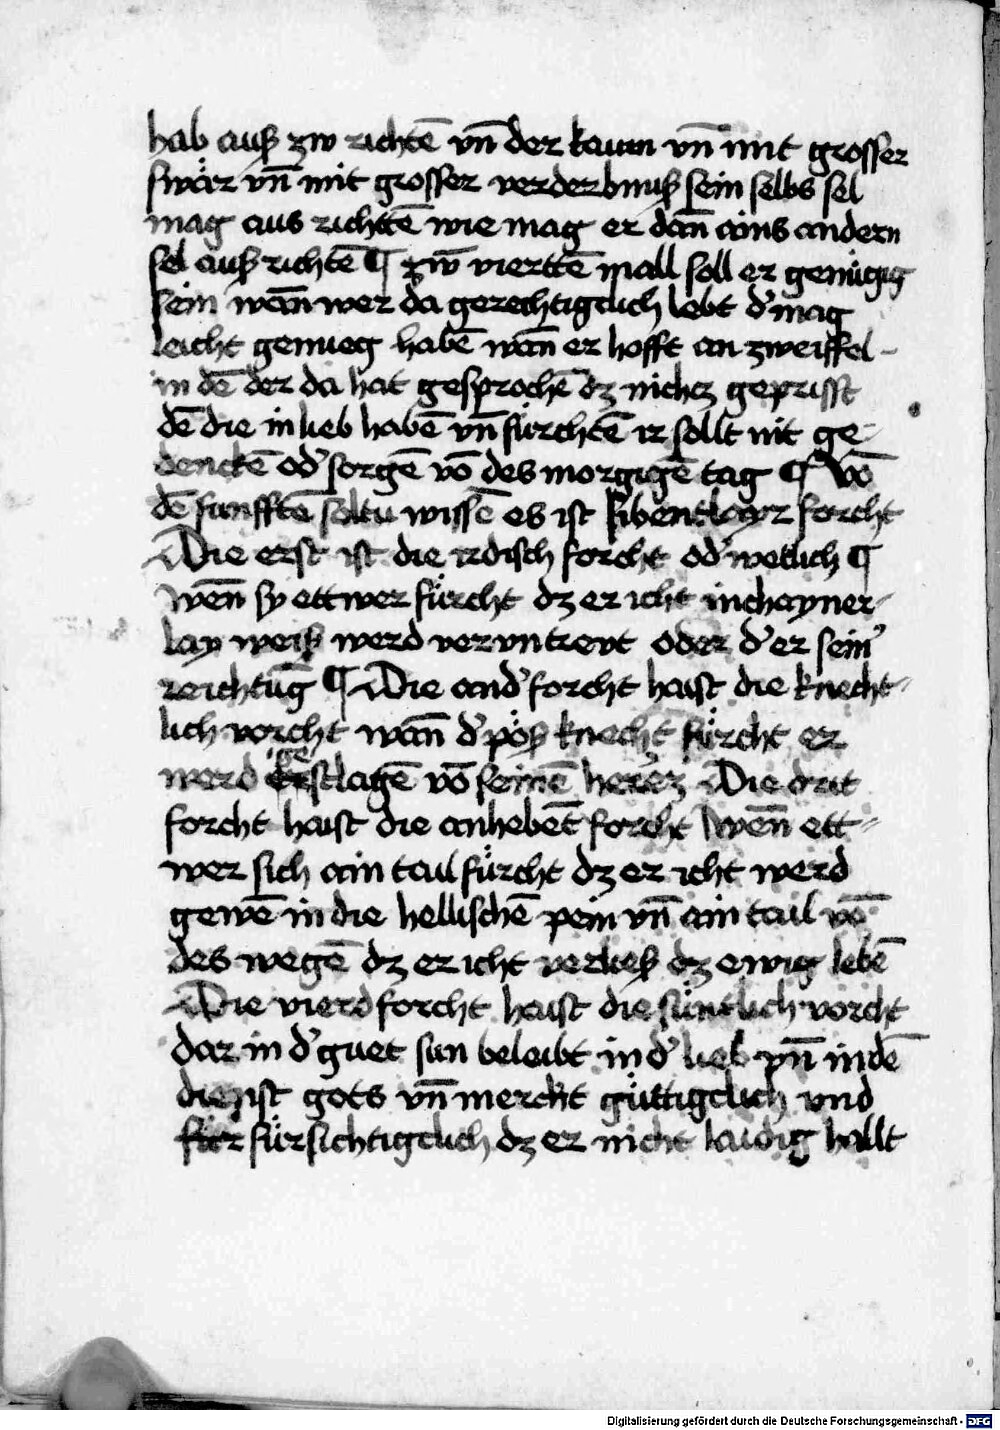 hab auß zw richtē vn̄ der kaum vn̄ mit grosser
swär vn̄ mit grosser verderbnuß sein selbs sel
mag aus richtē wie mag er dan̄ ains andern
sel auß richtē ¶ zw̄ viertē mall soll er genügig
sein wan̄ wer da gerechtigclich lebt d' mag
leicht genueg habē wan̄ er hofft an zweiffel-
in dē der da hat gesprochē dz nichcz geprisst
dē die in lieb habē vn̄ fürchtē ir sollt nit ge-
denckē od' sorgē vō des morgigē tag ¶ Vō
dē funfftē soltu wissē es ist sibentlayr forcht
Die erst ist die irdisch forcht od' wetlich ¶
wen̄ sy ettwer fürcht dz er icht inchayner-
lay weiß werd veruntrewt oder d' er sein'
reichtūg ¶ Die and' forcht haist die knecht-
lich vorcht wan̄ d' pöß knecht fürcht er
werd geslagē vō seinē herrē Die drit
forcht haist die anhebēt forcht Wen̄ ett-
wer sich ain tail fürcht dz er icht werd
gewē in die hellischē pein vn̄ ain tail vō
des wegē dz er icht verließ dz ewig lebē
Die vierd forcht haist die süntlich vorcht
dar in d' guet sun beleibt in d' lieb vn̄ in dē
dienst gots vn̄ merckt güttigclich vnd
für fürsichtigclich dz er nicht laidig hallt
Digitalisierung gefördert durch die Deutsche Forschungsgemeinschaft - DFG